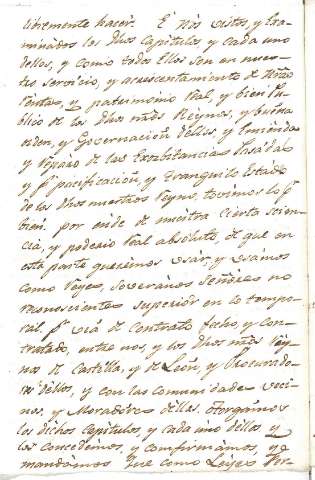 libremente hacer. E Nos vistos, y Exa-
minados los dhos Capitulos y cada uno
dellos, y como todos Ellos son en nues-
tro servicio, y acrescentamiento de nras
Rentas, y patrimonio Real, y bien Pu-
blico de los dhos nros Reynos, y buena
orden, y Governacion dellos, y Emienda
y reparo de las Exorbitancias Pasadas
y pª pacificacion, y tranquilo Estado
de los dhos nuestros Reynos, tovimos lo pr
bien, por ende de nuestra cierta scien-
cia, y poderio Real absoluto, de que en
esta parte queremos usar, y usamos
como Reyes, soveranos Señores no
reconoscientes superior en lo tempo-
ral pr via de Contrato fecho, y con-
tratado, entre nos, y los dhos nros Rey-
nos de Castilla, y de León, y Procurado-
res dellos, y con las comunidades veci-
nos, y Moradores dellas, otorgamos
los dichos Capitulos, y cada uno dellos y
los concedemos, y confirmamos, y
mandamos que como Leyes Per-